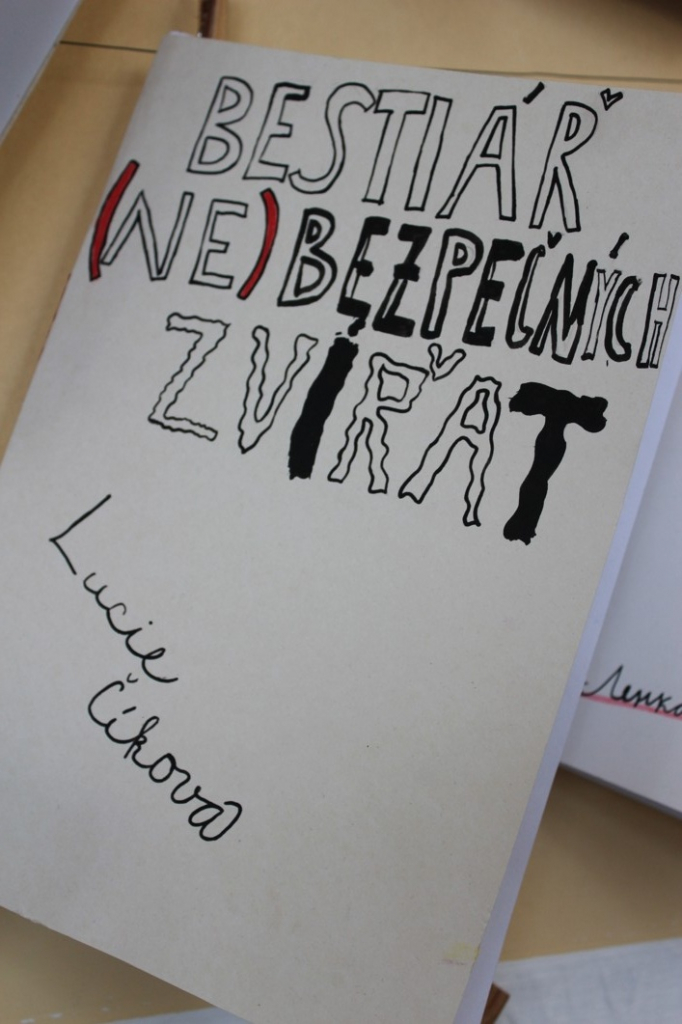 BESTIÁŘ
(NE)BEZPEČNÝCH
ZVÍŘAT
Lucie
Číková
Lenka